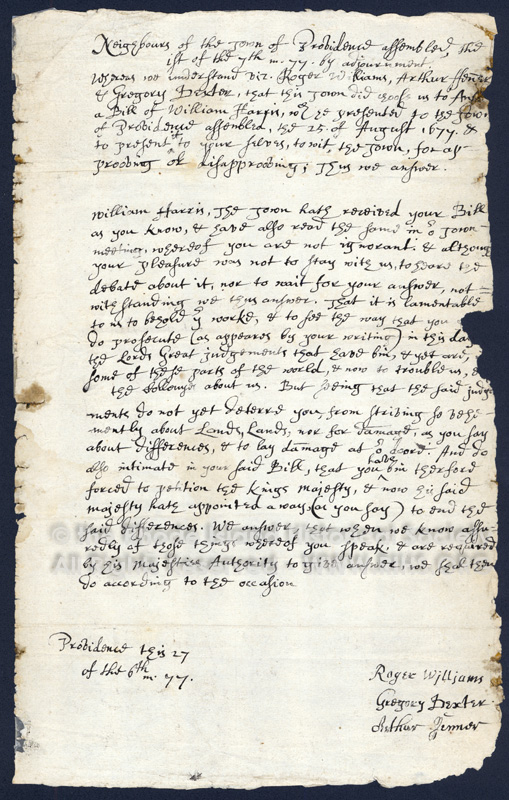 Neighbours of the Town of Providence assembled, the
1st of the 7th m. 77. by adjournment,
Whereas we understand viz. Roger Williams, Arthur ffener
& Gregory Dexter, that this Town did chose us to Ans
a Bill of William Harris, wch he presented to the Tow
of Providence assembled, the 25 of August 1677. &
to present it to your selves, to wit, the Town, for ap-
proving or disapproving; Thus we answer.
William Harris, The Town hath received your Bill
as you know, & have also read the same in our Town-
meeting, whereof you are not ignorant: & although
your pleasure was not to stay with us, to heare the
debate about it, nor to wait for your answer, not=
withstanding we thus answer. That it is lamentable
to us to behold ye worke, & to see the way that you
do prosecute (as appeares by your writing) in this da
the Lords Great judgements that have bin, & yet are,
some of these parts of the world, & now to trouble us, &
the about us. But seeing that the said judge
ments do not yet deterre you, from striving so vehe
mently about Lands, Lands, nor for damage, as you say
about differences, & to lay damage at And do
also intimate in your said Bill, that you have bin therfore
forced to petition the Kings majesty, & now his said
majesty hath appointed a way (as you say) to end the
said differences. We answer, that when we know assu-
redly of those things whereof you speak, & are required
by his majesties Authority to give answer, we shal then
do according to the occasion
Providence this 27
of the 6th m. 77.
Roger Williams
Gregory Dexter
Arthur ffenner